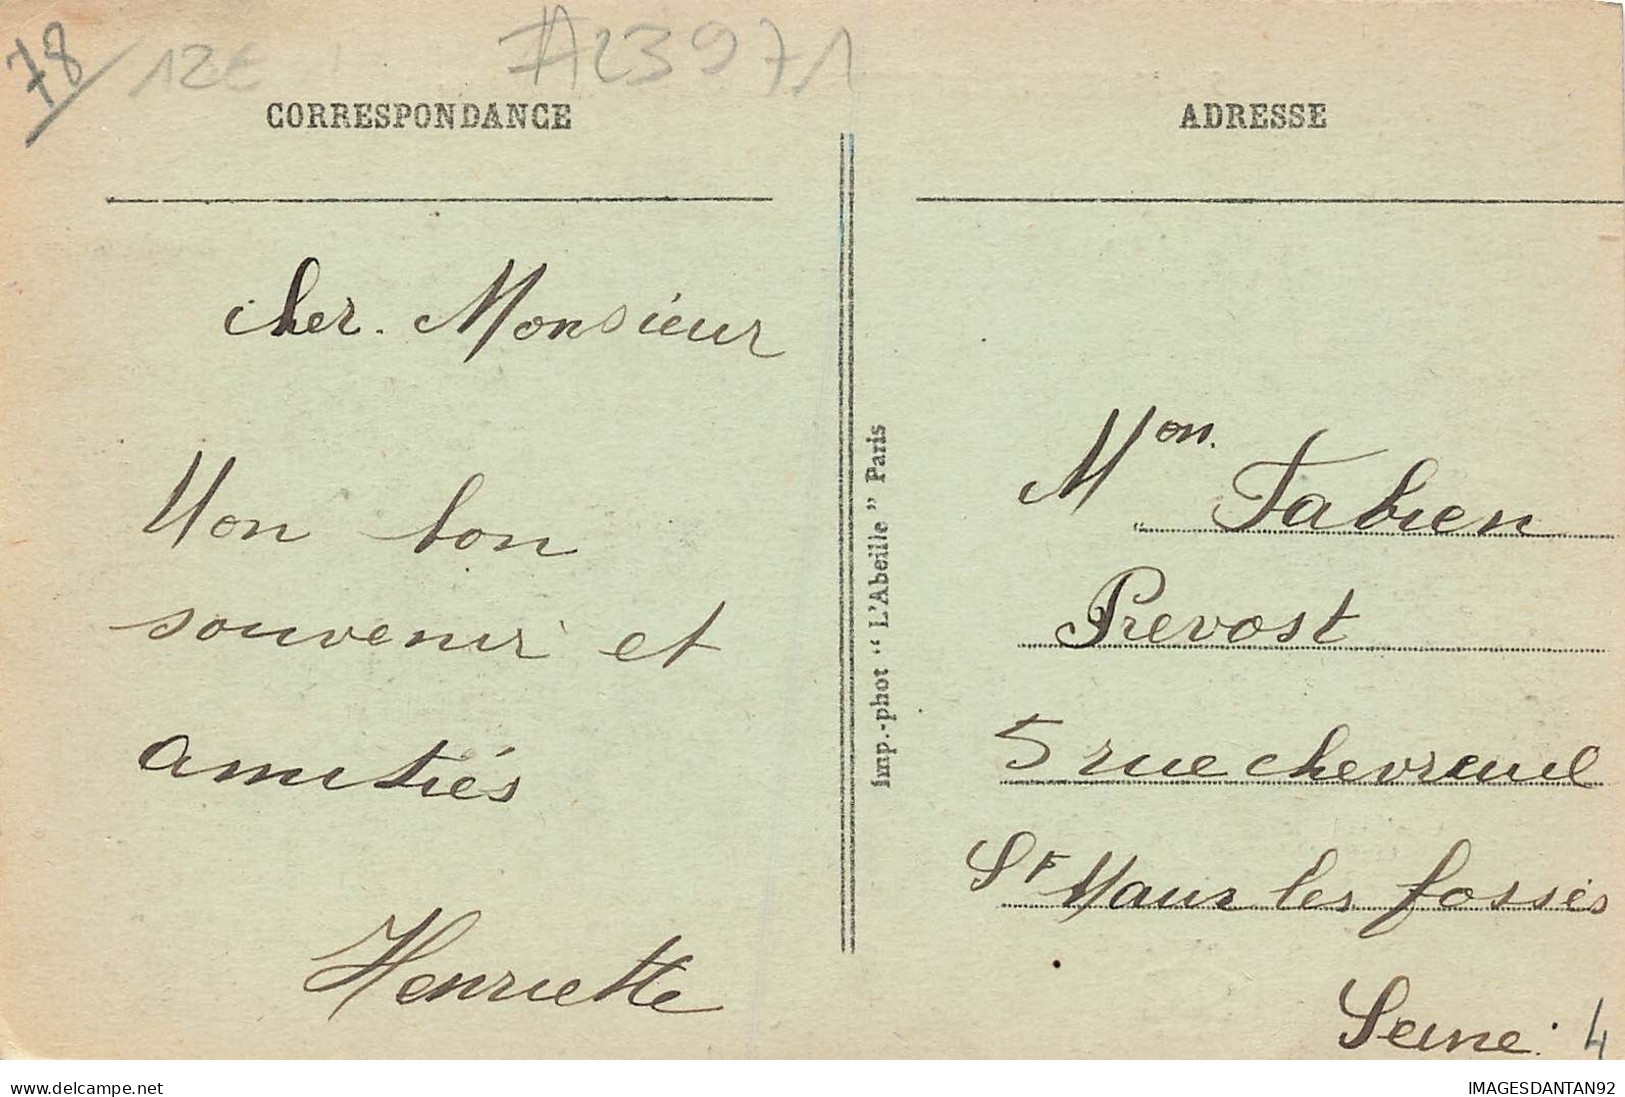 78 / 12€
A23971
CORRESPONDANCE
cher. Monsieur
Mon bon
souvenir et
amitiés
Henriette
Imp.-phot “ L'Abeille ” Paris
ADRESSE
Mon. Fabien
Prevost
5 rue chevreul
St Maur les fossés
Seine.
4
www.delcampe.net
IMAGESDANTAN92